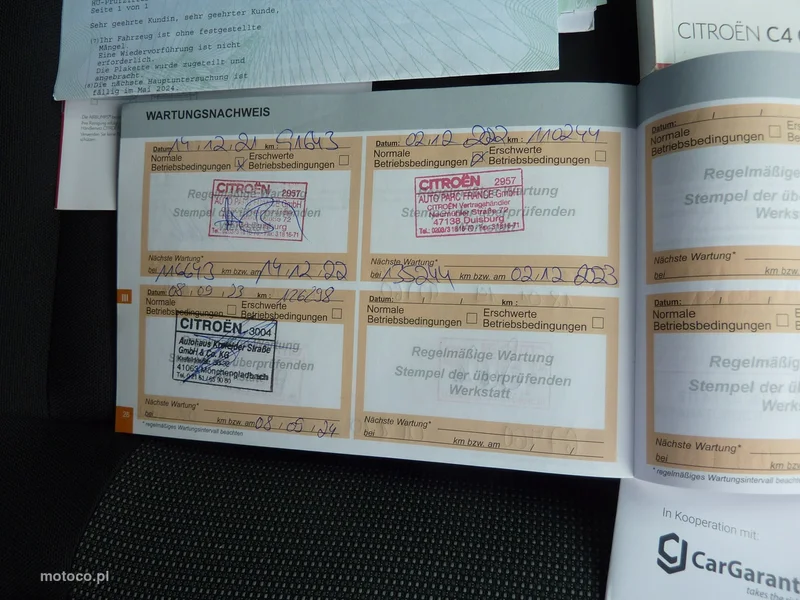 Seite 1 von 1
Sehr geehrte Kundin, sehr geehrter Kunde,
Ihr Fahrzeug ist ohne festgestellte
Mängel.
Eine Wiedervorführung ist nicht
erforderlich.
Die Plakette wurde zugeteilt und
angebracht.
Die nächste Hauptuntersuchung ist
fällig im Mai 2024.
CITROËN C4
WARTUNGSNACHWEIS
Datum: 14.12.21 km: 91643
Normale Betriebsbedingungen
Erschwerte Betriebsbedingungen
Regelmäßige Wartung
Stempel der überprüfenden
CITROËN 2957
47138 Duisburg
Nächste Wartung*
bei 116643 km bzw. am 14.12.22
Datum: 02.12.2022 km: 110244
Normale Betriebsbedingungen
Erschwerte Betriebsbedingungen
CITROËN 2957
AUTO PARC FRANCE GmbH
CITROËN Vertragshändler
Neumühler Straße 72
47138 Duisburg
Nächste Wartung*
bei 135244 km bzw. am 02.12.2023
Datum: 08.09.23 km: 126298
Normale Betriebsbedingungen
Erschwerte Betriebsbedingungen
CITROËN 3004
Autohaus Krefelder Straße
GmbH & Co. KG
Mönchengladbach
Nächste Wartung*
bei km bzw. am 08.09.24
Datum: / / km:
Normale Betriebsbedingungen
Erschwerte Betriebsbedingungen
Regelmäßige Wartung
Stempel der überprüfenden
Werkstatt
Nächste Wartung*
bei km bzw. am / /
* regelmäßiges Wartungsintervall beachten
III
Datum: / /
Normale
Betriebsbedingungen
Regelmäßige
Stempel der
Nächste Wartung*
bei km bzw. am
Datum: / /
Normale
Betriebsbedingungen
Regelmäßige
Stempel der
Nächste Wartung*
bei km bzw. am
* regelmäßiges Wartungsintervall
In Kooperation mit:
CarGarant
takes the
motoco.pl